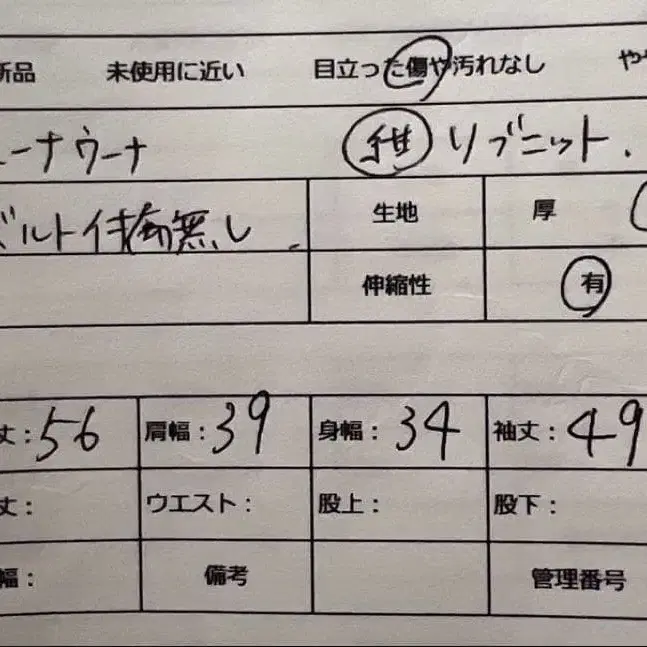 新品 未使用に近い 目立った傷や汚れなし やや
ーナウーナ 甜 リブニット.
ベルト付属無し. 生地 厚
伸縮性 有
丈: 56 肩幅: 39 身幅: 34 袖丈: 49
丈: ウエスト: 股上: 股下:
幅: 備考 管理番号